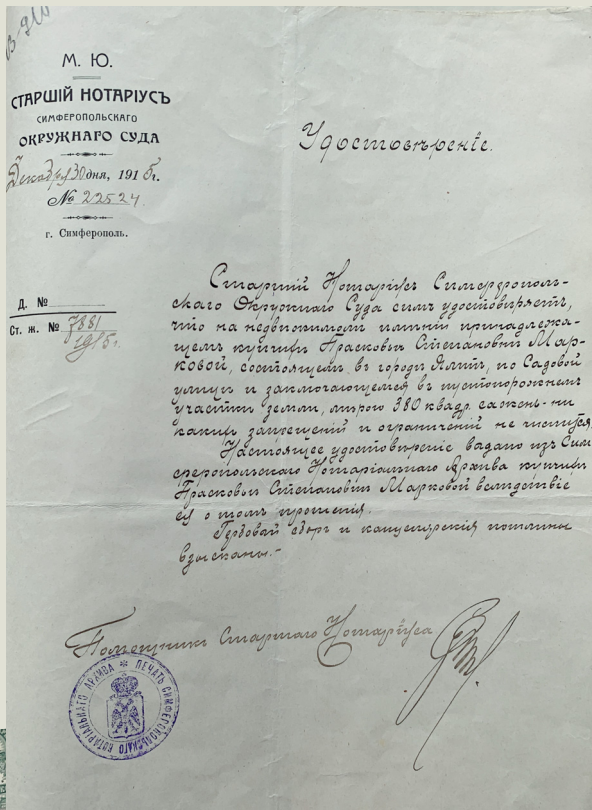 М. Ю.
СТАРШІЙ НОТАРІУСЪ
СИМФЕРОПОЛЬСКАГО
ОКРУЖНАГО СУДА
Декабря 30 дня, 1915 г.
№ 22524.
г. Симферополь.
Д. №
Ст. ж. № 7881
1915 г.
Удостовѣреніе.
Старшій Нотаріусъ Симферополь-
скаго Окружнаго Суда симъ удостовѣряетъ,
что на недвижимомъ имѣніи принадлежа-
щемъ купчихѣ Прасковьѣ Степановнѣ Мар-
ковой, состоящемъ въ городѣ Ялтѣ, по Садовой
улицѣ и заключающемся въ пустопорожнемъ
участкѣ земли, мѣрою 380 квадр. сажень - ни-
какихъ запрещеній и ограниченій не числится.
Настоящее удостовѣреніе выдано изъ Сим-
феропольскаго Нотаріальнаго Архива купчихѣ
Прасковьѣ Степановнѣ Марковой вслѣдствіе
ея о томъ прошенія.
Гербовый сборъ и канцелярскія пошлины
взысканы.-
Помощникъ Старшаго Нотаріуса
ПЕЧАТЬ СИМФЕРОПОЛЬСКАГО НОТАРІАЛЬНАГО АРХИВА